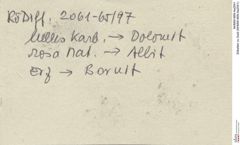 RöDiff. 2061-65/97
helles Karb. → Dolomit
rosa Mat. → Albit
Erz → Bornit